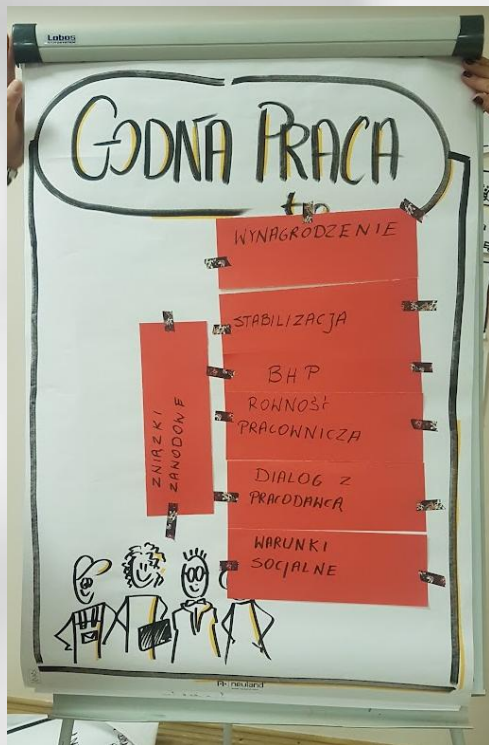 Labos
GODNA PRACA
to
WYNAGRODZENIE
STABILIZACJA
BHP
ROWNOŚĆ
PRACOWNICZA
DIALOG Z
PRACODAWCĄ
WARUNKI
SOCJALNE
ZWIĄZKI
ZAWODOWE
neuland